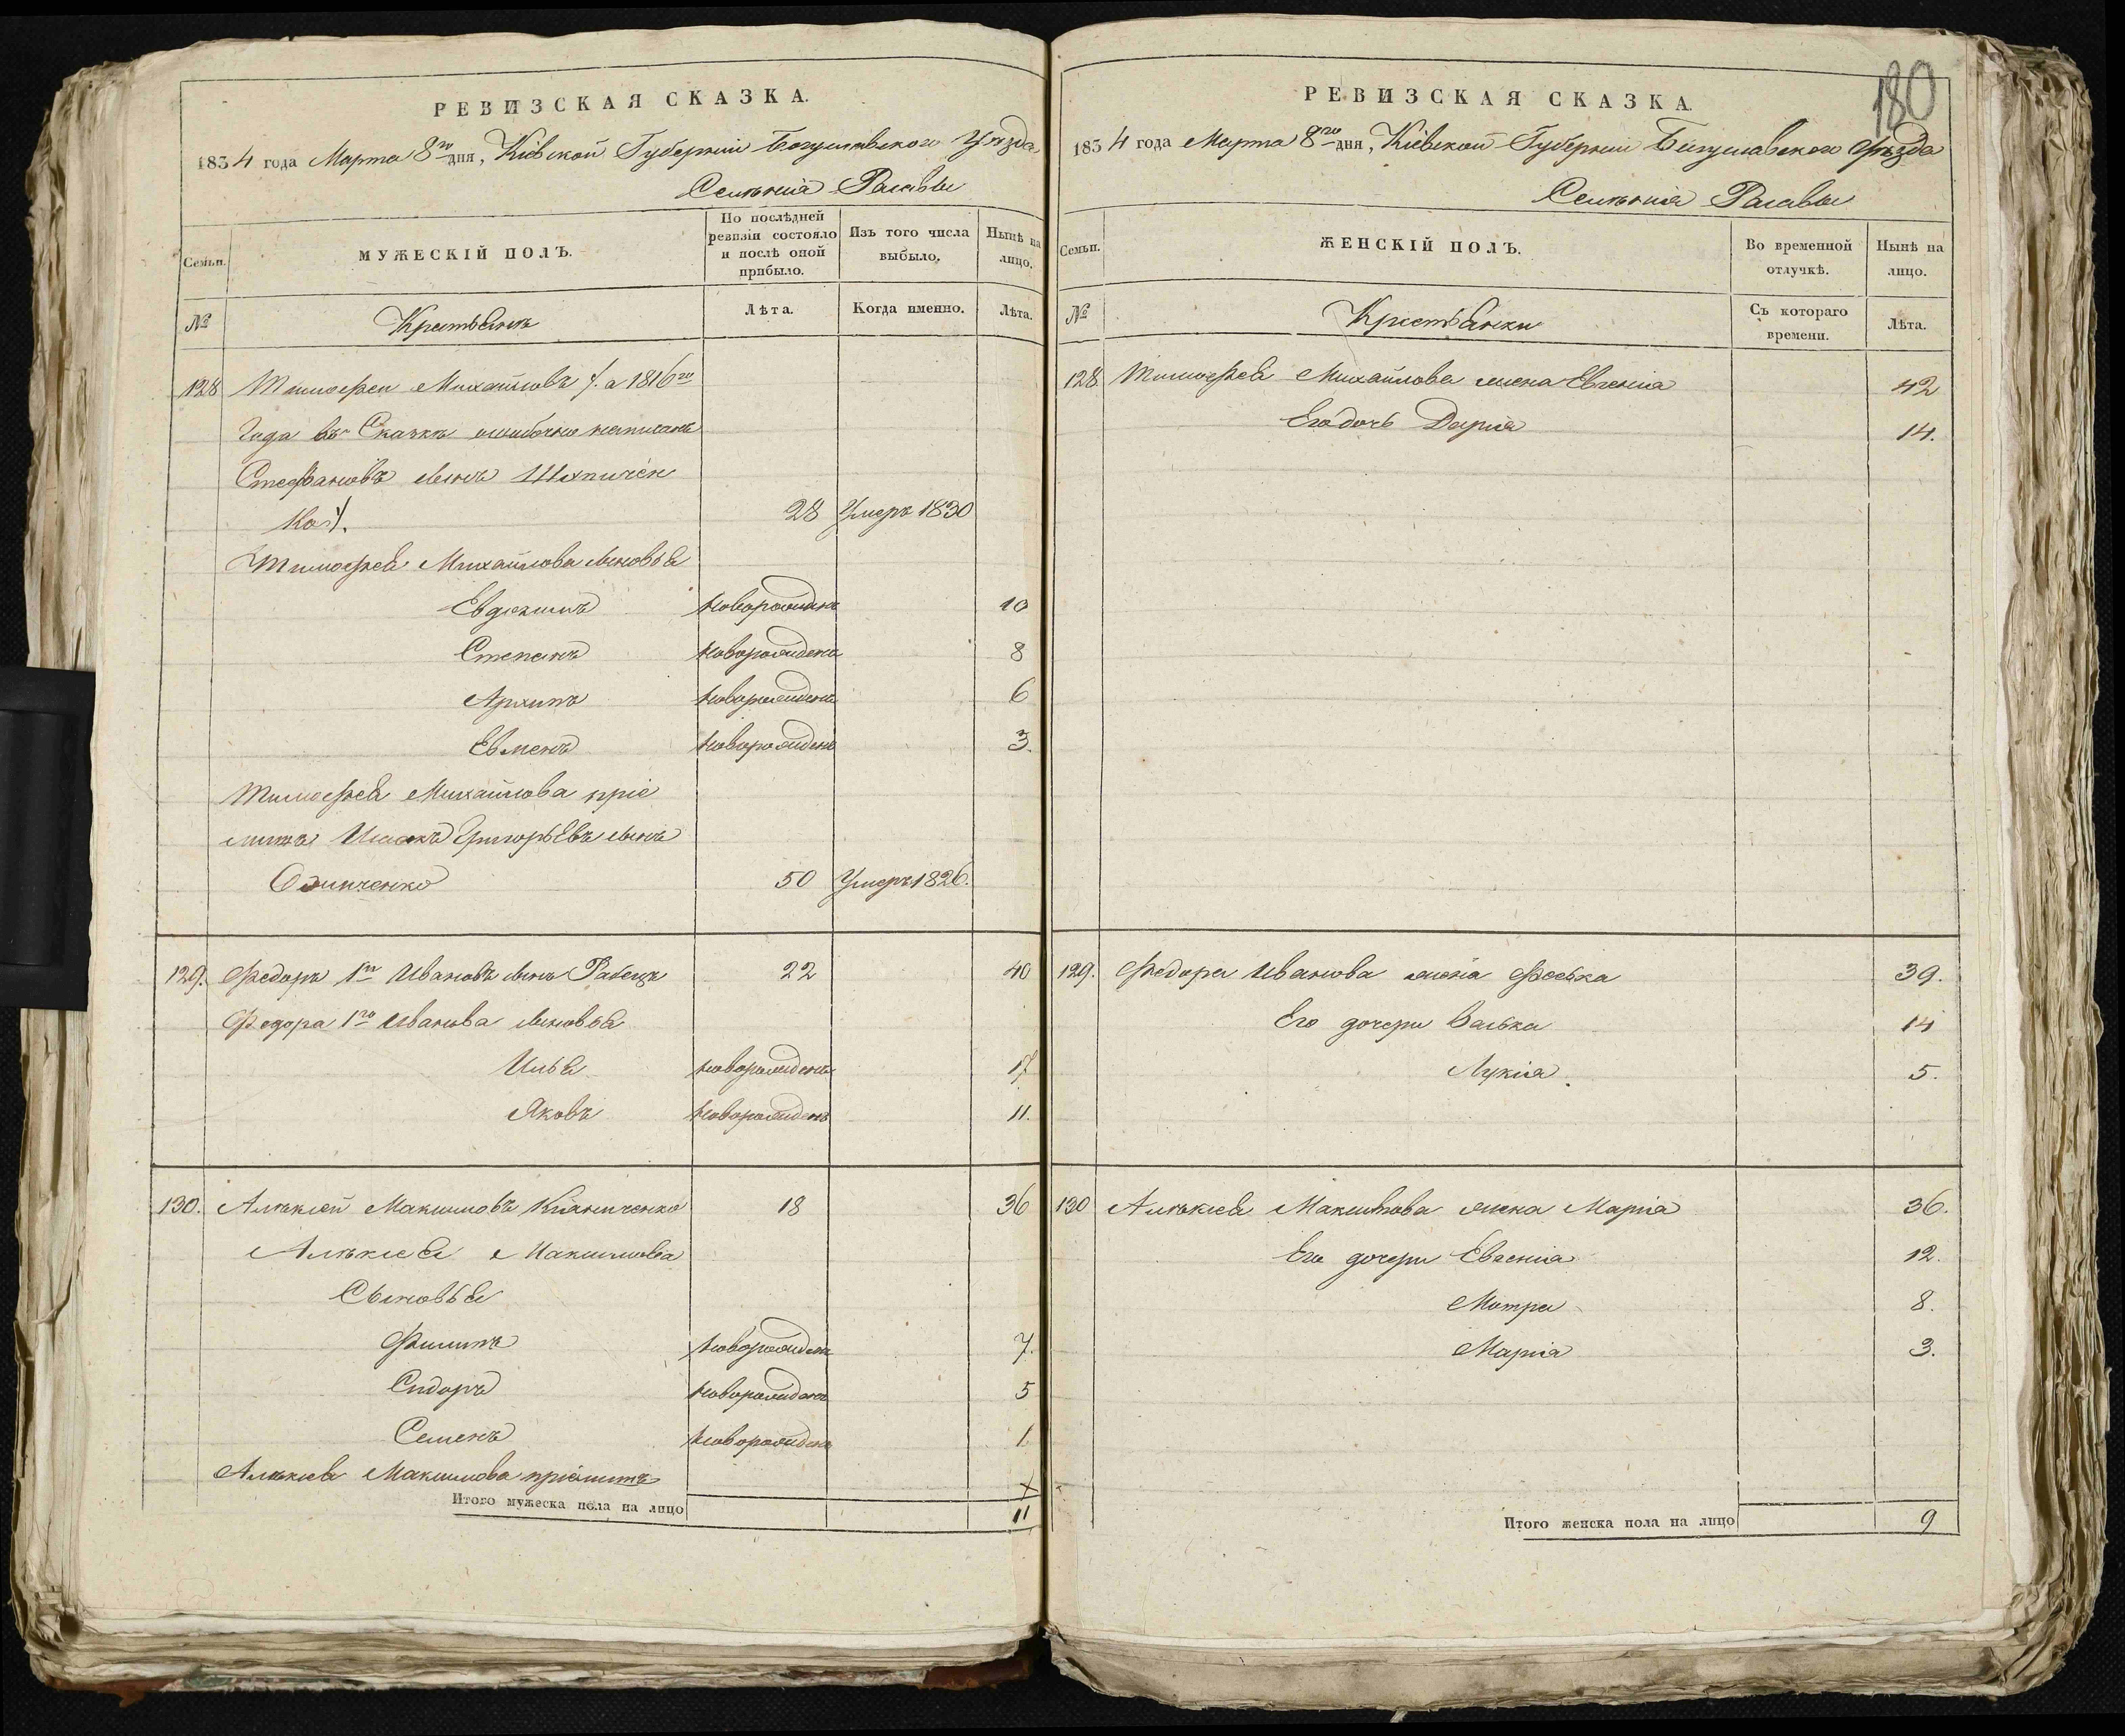 РЕВИЗСКАЯ СКАЗКА.
1834 года Марта 8го дня, Кіевской Губерніи Богуславского Уѣзда
Селѣнія Расавы
Семьи.
МУЖЕСКІЙ ПОЛЪ.
По послѣдней ревизіи состояло и послѣ оной прибыло.
Изъ того числа выбыло.
Нынѣ на лицо.
№
Крестьянѣ
Лѣта.
Когда именно.
Лѣта.
128 Тимофей Михайловъ /: а 1816го
Года въ Сказкѣ ошибочно написанъ
Стефановъ сынъ
ко :/. 28 Умеръ 1830
Тимофея Михайлова сыновья
Евдокимъ новорожденъ 10
Степанъ новорожденъ 8
Архипъ новорожденъ 6
Евменъ новорожденъ 3.
Тимофея Михайлова пріе
мышъ Исаакъ Григорьевъ сынъ
50 Умеръ 1826.
129. Федоръ 1й Ивановъ сынъ 22 40
Федора 1го Иванова сыновья
Илья новорожденъ 17
Яковъ новорожденъ 11.
130. Алѣксѣй Максимовъ 18 36
Алѣксѣя Максимова
Сыновья
Филипъ новорожденъ 7.
Сидоръ новорожденъ 5
Семенъ новорожденъ 1
Алѣксѣя Максимова пріемышъ х
Итого мужеска пола на лицо 11
180
РЕВИЗСКАЯ СКАЗКА.
1834 года Марта 8го дня, Кіевской Губерніи Богуславского Уѣзда
Селѣнія Расавы
Семьи.
ЖЕНСКІЙ ПОЛЪ.
Во временной отлучкѣ.
Нынѣ на лицо.
№
Крестьянки
Съ котораго времени.
Лѣта.
128. Тимофея Михайлова жена Евгенія 42
Его дочь Дарія 14.
129. Федора Иванова жена Феська 39.
Его дочери Васька 14
Лукія 5.
130 Алѣксѣя Максимова жена Марія 36.
Его дочери 12.
Мотра 8.
Марія 3.
Итого женска пола на лицо 9